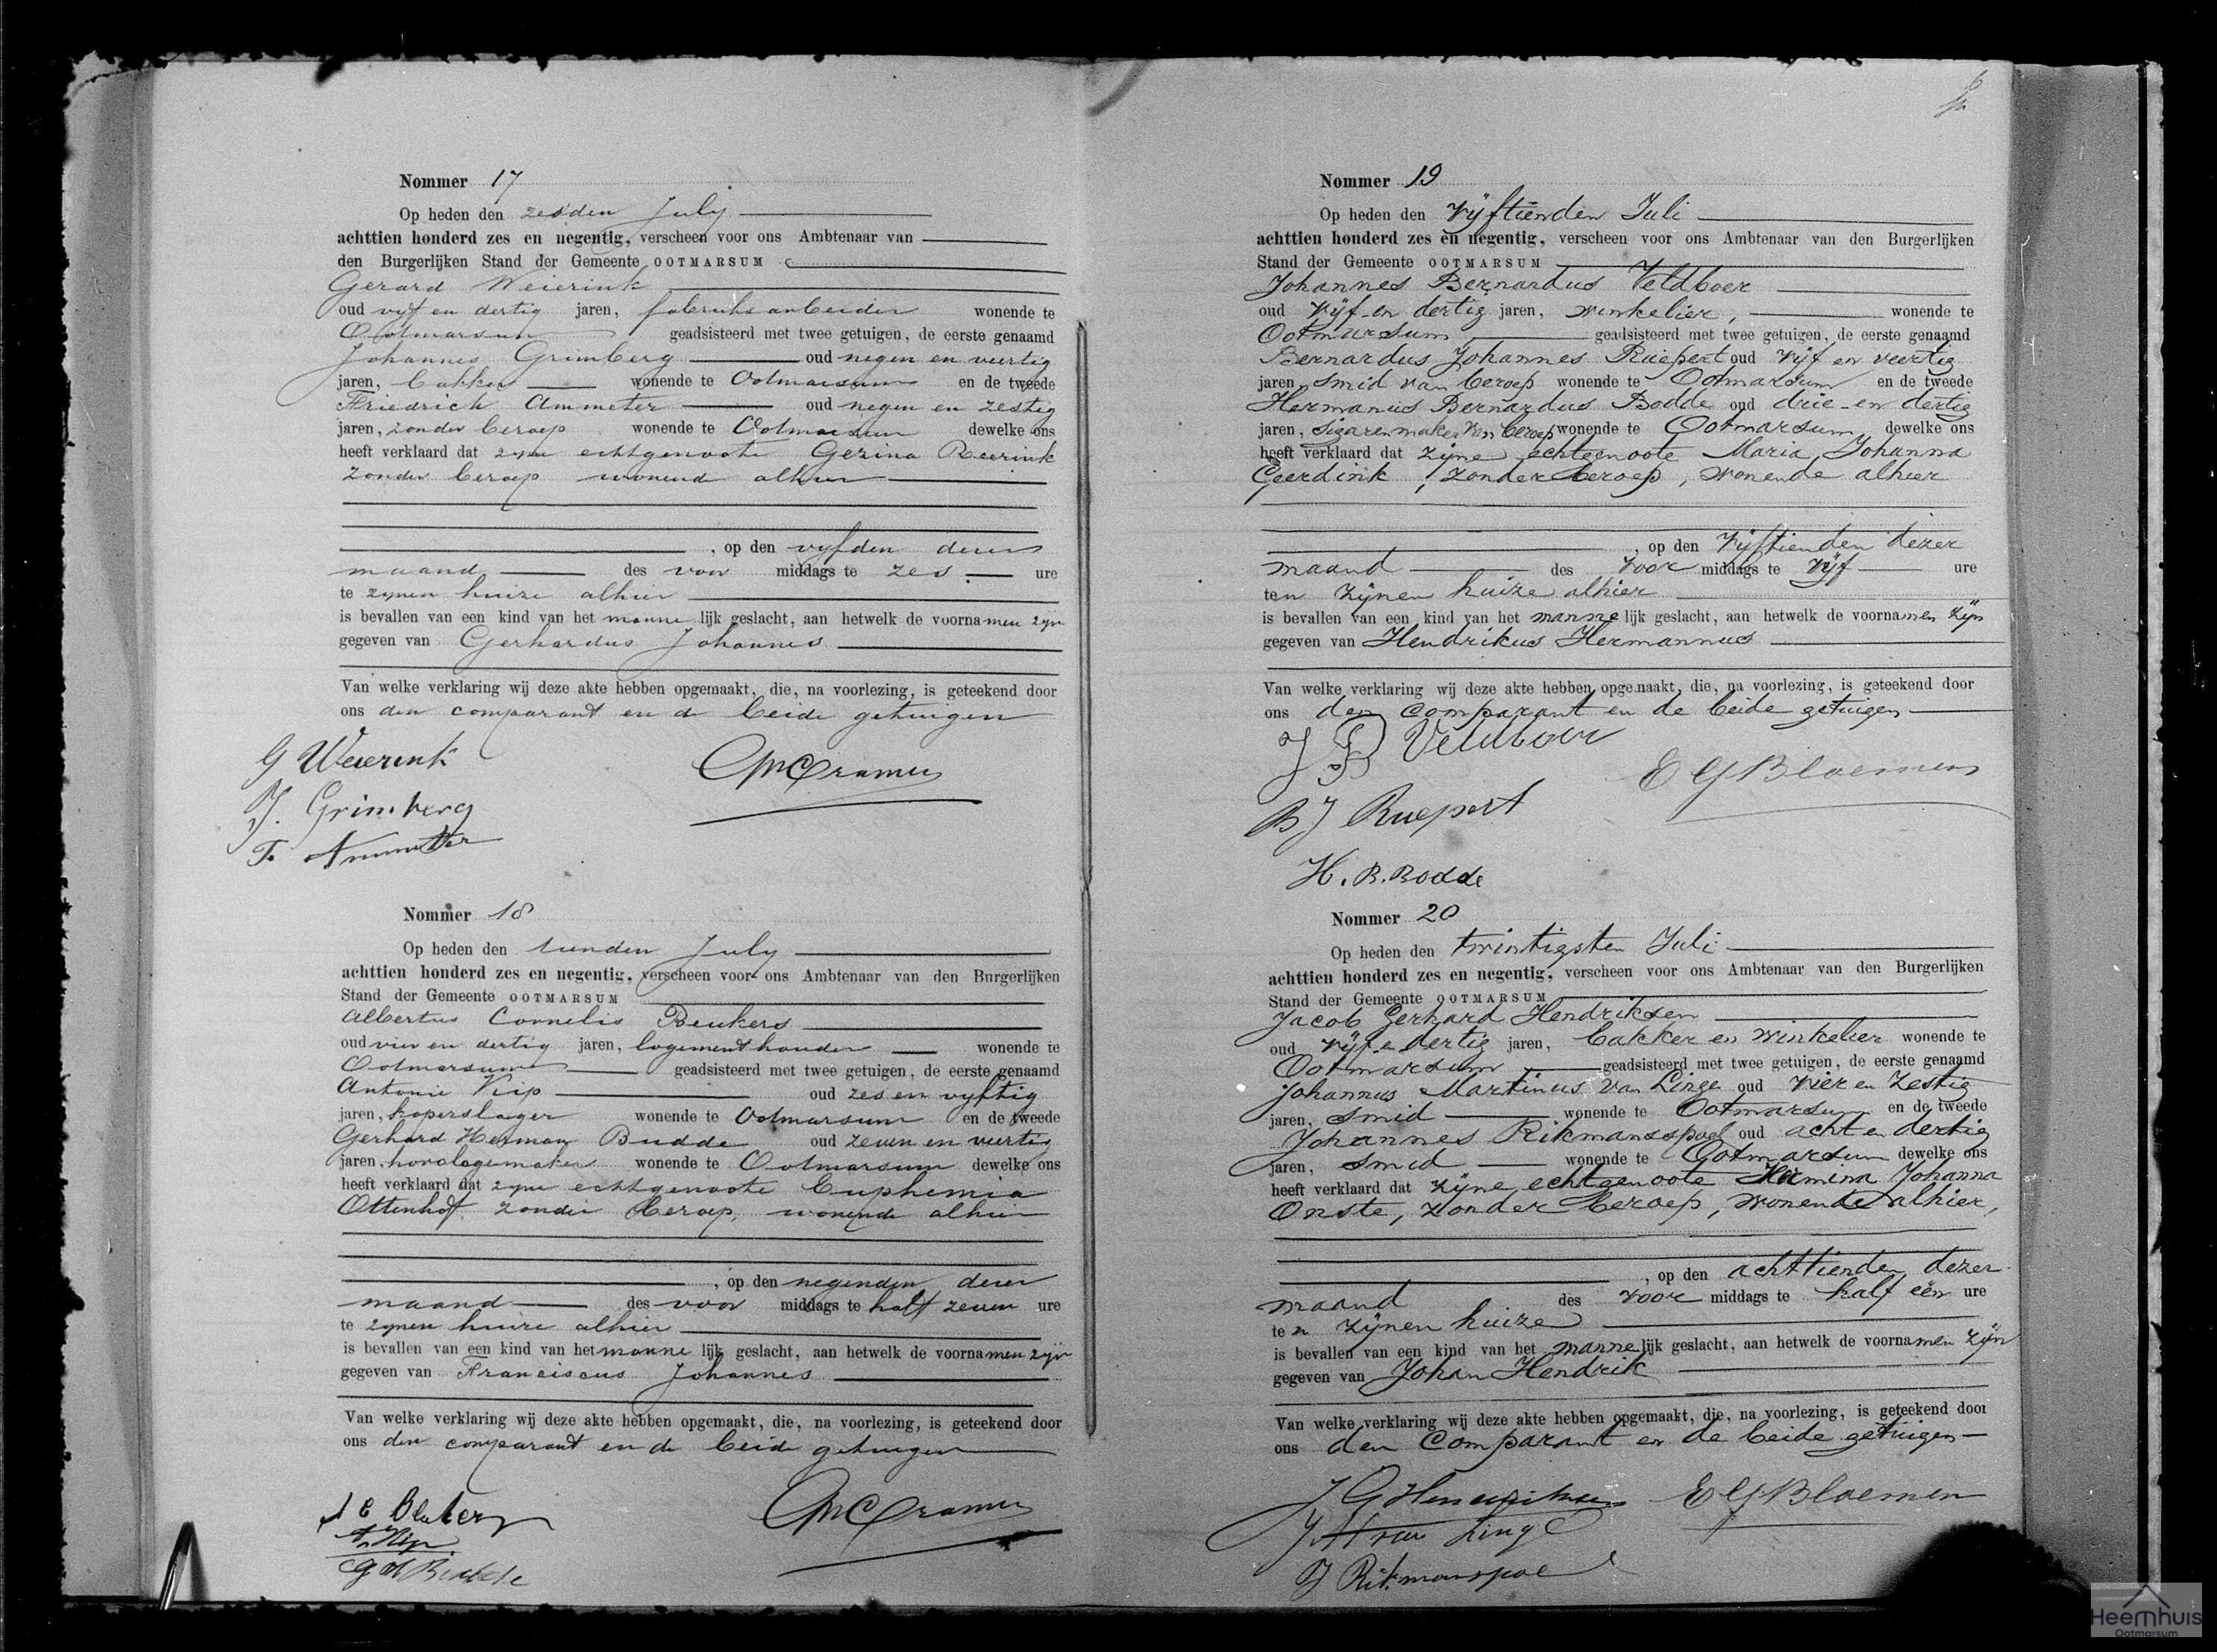 Nommer 17
Op heden den zesden July
achttien honderd zes en negentig, verscheen voor ons Ambtenaar van
den Burgerlijken Stand der Gemeente OOTMARSUM
Gerard Weierink
oud vyf en dertig jaren, fabrieksarbeider wonende te
Ootmarsum geadsisteerd met twee getuigen, de eerste genaamd
Johannes Grimberg oud negen en veertig
jaren, bakker wonende te Ootmarsum en de tweede
Friedrich Ammeter oud negen en zestig
jaren, zonder beroep wonende te Ootmarsum dewelke ons
heeft verklaard dat zyne echtgenoote Gezina Reerink
zonder beroep wonende alhier
, op den vyfden dezer
maand des voor middags te zes ure
te zynen huize alhier
is bevallen van een kind van het manne lijk geslacht, aan hetwelk de voornamen zyn
gegeven van Gerhardus Johannes
Van welke verklaring wij deze akte hebben opgemaakt, die, na voorlezing, is geteekend door
ons den comparant en de beide getuigen
G Weierink
J. Grimberg
F. Ammeter
Cramer
Nommer 18
Op heden den tienden July
achttien honderd zes en negentig, verscheen voor ons Ambtenaar van den Burgerlijken
Stand der Gemeente OOTMARSUM
Albertus Cornelis Beukers
oud vier en dertig jaren, logementhouder wonende te
Ootmarsum geadsisteerd met twee getuigen, de eerste genaamd
Antonie Kip oud zes en vyftig
jaren, koperslager wonende te Ootmarsum en de tweede
Gerhard Herman Budde oud zeven en veertig
jaren, horologemaker wonende te Ootmarsum dewelke ons
heeft verklaard dat zyne echtgenoote Euphemia
Ottenhof zonder beroep, wonende alhier
, op den negenden dezer
maand des voor middags te half zeven ure
te zynen huize alhier
is bevallen van een kind van het manne lijk geslacht, aan hetwelk de voornamen zyn
gegeven van Franciscus Johannes
Van welke verklaring wij deze akte hebben opgemaakt, die, na voorlezing, is geteekend door
ons den comparant en de beide getuigen
A C Beukers
A. Kip
G H Budde
Cramer
Nommer 19
Op heden den vijftienden Juli
achttien honderd zes en negentig, verscheen voor ons Ambtenaar van den Burgerlijken
Stand der Gemeente OOTMARSUM
Johannes Bernardus Veldboer
oud vijf en dertig jaren, winkelier, wonende te
Ootmarsum, geadsisteerd met twee getuigen, de eerste genaamd
Bernardus Johannes Ruepert oud vijf en veertig
jaren, smid van beroep wonende te Ootmarsum en de tweede
Hermanus Bernardus Bodde oud drie en dertig
jaren, sigarenmaker van beroep wonende te Ootmarsum dewelke ons
heeft verklaard dat zijne echtgenoote Maria Johanna
Geerdink, zonder beroep, wonende alhier
, op den vijftienden dezer
maand des voor middags te vijf ure
ten zijnen huize alhier
is bevallen van een kind van het manne lijk geslacht, aan hetwelk de voornamen zijn
gegeven van Hendrikus Hermannus
Van welke verklaring wij deze akte hebben opgemaakt, die, na voorlezing, is geteekend door
ons den comparant en de beide getuigen
J B Veldboer
E G Bloemen
B J Ruepert
H. B. Bodde
Nommer 20
Op heden den twintigsten Juli
achttien honderd zes en negentig, verscheen voor ons Ambtenaar van den Burgerlijken
Stand der Gemeente OOTMARSUM
Jacob Gerhard Hendriksen
oud vijf en dertig jaren, bakker en winkelier wonende te
Ootmarsum geadsisteerd met twee getuigen, de eerste genaamd
Johannus Martinus van Linge oud vier en zestig
jaren, smid wonende te Ootmarsum en de tweede
Johannes Rikmansspoel oud acht en dertig
jaren, smid wonende te Ootmarsum dewelke ons
heeft verklaard dat zijne echtgenoote Hermina Johanna
Onste, zonder beroep, wonende alhier,
, op den achttienden dezer
maand des voor middags te half een ure
ten zijnen huize
is bevallen van een kind van het manne lijk geslacht, aan hetwelk de voornamen zijn
gegeven van Johan Hendrik
Van welke verklaring wij deze akte hebben opgemaakt, die, na voorlezing, is geteekend door
ons den comparant en de beide getuigen
J G Hendriksen
E G Bloemen
J M van Linge
J Rikmanspoel
Heemhuis
Ootmarsum